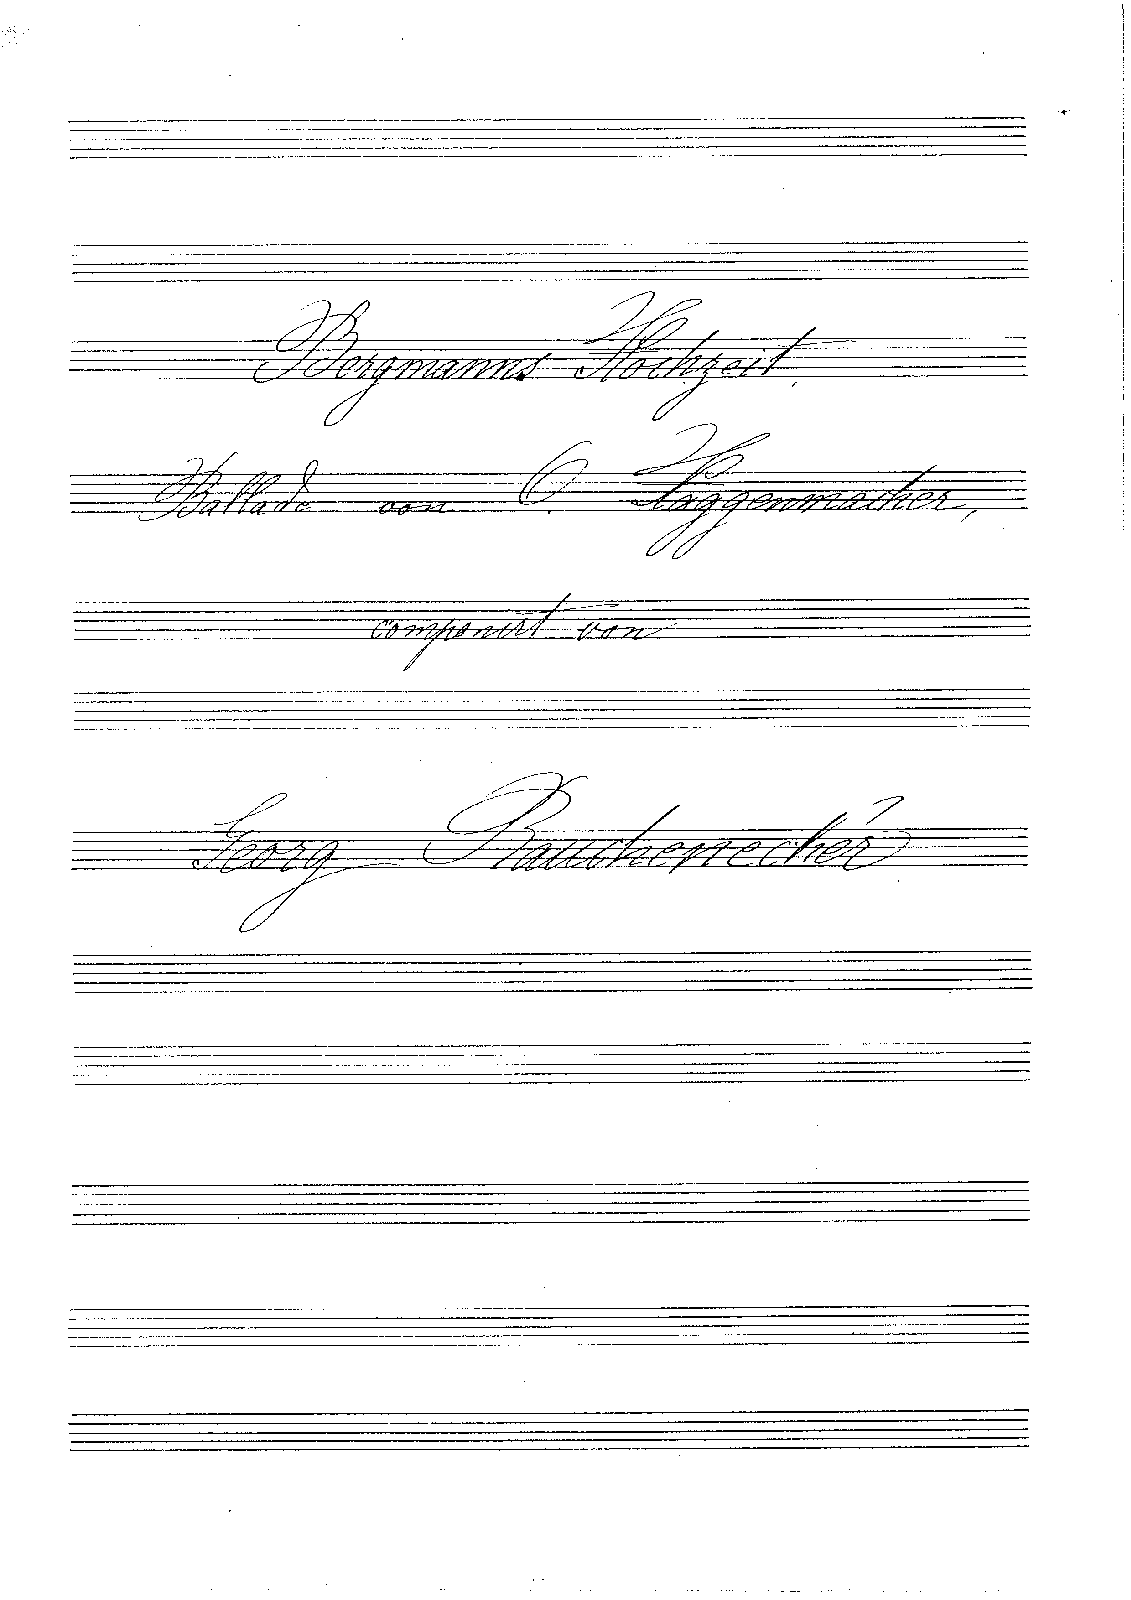 Bergmanns Hochzeit.
Ballade von O. Haggenmacher,
componirt von
Georg Rauchenecker